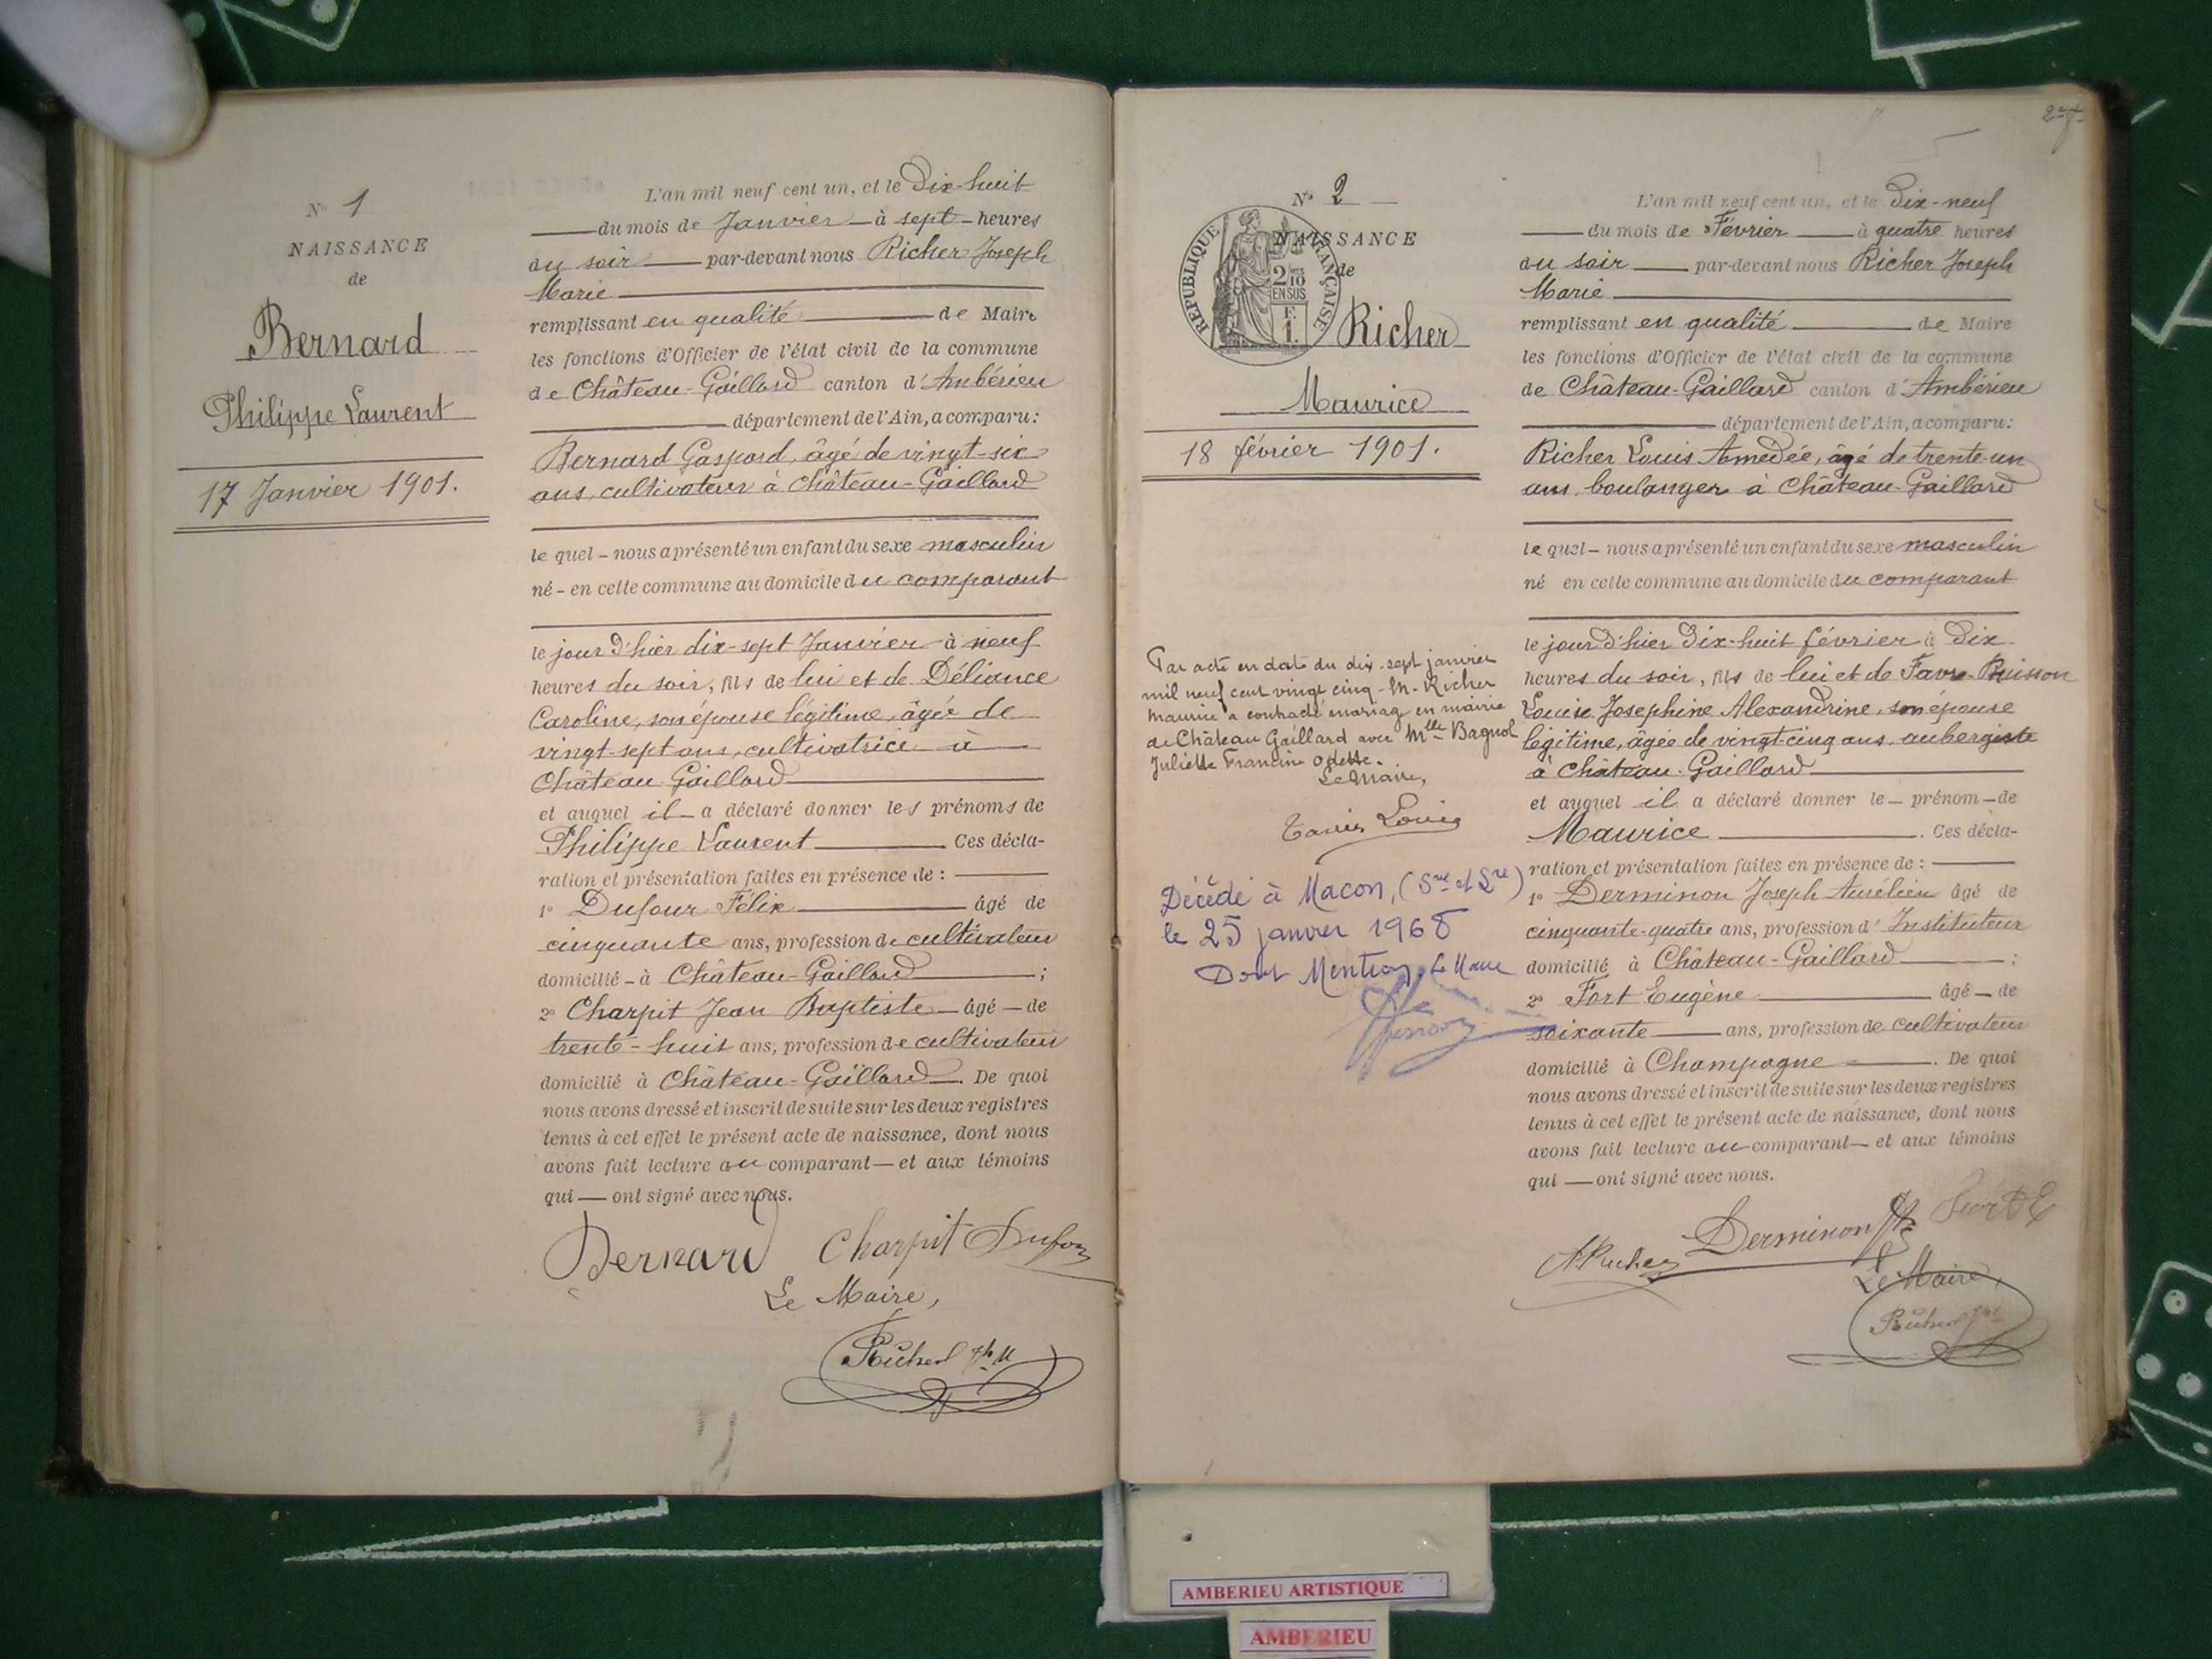 N° 1
NAISSANCE
de
Bernard
Philippe Laurent
17 Janvier 1901.
L'an mil neuf cent un, et le Dix-huit
du mois de Janvier à sept heures
du soir par-devant nous Richer Joseph
Marie
remplissant en qualité de Maire
les fonctions d'Officier de l'état civil de la commune
de Château-Gaillard canton d'Ambérieu
département de l'Ain, a comparu:
Bernard Gaspard, âgé de vingt-six
ans, cultivateur à Château-Gaillard
le quel - nous a présenté un enfant du sexe masculin
né - en cette commune au domicile du comparant
le jour d'hier dix-sept Janvier à neuf
heures du soir, fils de lui et de Déliance
Caroline, son épouse légitime, âgée de
vingt-sept ans, cultivatrice à
Château-Gaillard
et auquel il a déclaré donner les prénoms de
Philippe Laurent Ces décla-
ration et présentation faites en présence de :
1° Dufour Félix âgé de
cinquante ans, profession de cultivateur
domicilié - à Château-Gaillard ;
2° Charpit Jean Baptiste âgé - de
trente-huit ans, profession de cultivateur
domicilié à Château-Gaillard. De quoi
nous avons dressé et inscrit de suite sur les deux registres
tenus à cet effet le présent acte de naissance, dont nous
avons fait lecture au comparant — et aux témoins
qui — ont signé avec nous.
Bernard Charpit Dufour
Le Maire,
Richer Jh M
N° 2
NAISSANCE
de
REPUBLIQUE FRANÇAISE
2/10
EN SUS
F.
1.
Richer
Maurice
18 février 1901.
Par acte en date du dix-sept janvier
mil neuf cent vingt cinq - M. Richer
Maurice a contracté mariage en mairie
de Château Gaillard avec Mlle Bagnol
Juliette Francine Odette.
Le Maire,
Louis
Décédé à Macon, (Sne et Lre)
le 25 janvier 1968
Dont Mention, Le Maire
L'an mil neuf cent un, et le Dix-neuf
du mois de Février à quatre heures
du soir par-devant nous Richer Joseph
Marie
remplissant en qualité de Maire
les fonctions d'Officier de l'état civil de la commune
de Château-Gaillard canton d'Ambérieu
département de l'Ain, a comparu:
Richer Louis Amédée, âgé de trente-un
ans, boulanger à Château-Gaillard
le quel - nous a présenté un enfant du sexe masculin
né en cette commune au domicile du comparant
le jour d'hier Dix-huit février à Dix
heures du soir, fils de lui et de Favre-Buisson
Louise Josephine Alexandrine, son épouse
légitime, âgée de vingt-cinq ans, aubergiste
à Château-Gaillard
et auquel il a déclaré donner le - prénom - de
Maurice . Ces décla-
ration et présentation faites en présence de :
1° Derminon Joseph Aurélien âgé de
cinquante-quatre ans, profession d'Instituteur
domicilié à Château-Gaillard ;
2° Fort Eugène âgé - de
soixante ans, profession de cultivateur
domicilié à Champagne . De quoi
nous avons dressé et inscrit de suite sur les deux registres
tenus à cet effet le présent acte de naissance, dont nous
avons fait lecture au comparant — et aux témoins
qui — ont signé avec nous.
A Richer Derminon Jh Fort E
Le Maire,
Richer
AMBERIEU ARTISTIQUE
AMBERIEU